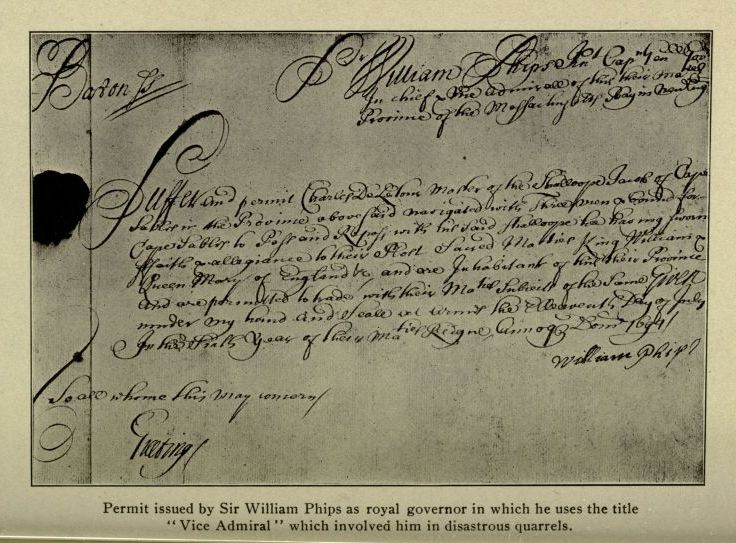 Baron ss
Sr William Phips Knt Capn Gen
In chief & Vice Admirall of this their Ma
Province of the Massachusetts Bay in New Eng
Suffer and permit Charles De Latour Master of the Shalloope Jacob of Cape
Sables in the Province abovesaid navigated with three men & bound for
Cape Sables to Pass and Repass with his said shalloope he having sworn
ffaith & allegiance to their Most Sacred Maties King William &
Queen Mary of England &c and are Inhabitant of this their Province
And are permitted to trade with their Maties Subjects of the Same Given
under my hand And Seale at the Eleaventh Day of July
In the Sixth Year of their Maties Reigne Annoq Dom 1694
William Phips
To all whome this may concern
Greeting
Permit issued by Sir William Phips as royal governor in which he uses the title
"Vice Admiral" which involved him in disastrous quarrels.